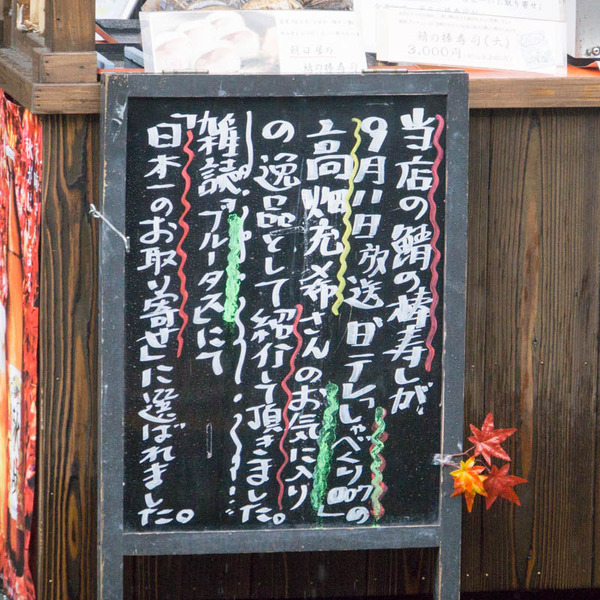 鯖の棒寿司(大)
3,000円
朝日屋の
鯖の棒寿司
当店の鯖の棒寿しが
9月11日放送 日テレ「しゃべくり007」の
高畑充希さんのお気に入り
の逸品として紹介て頂きました。
雑誌「ブルータス」にて
「日本一のお取り寄せ」に選ばれました。